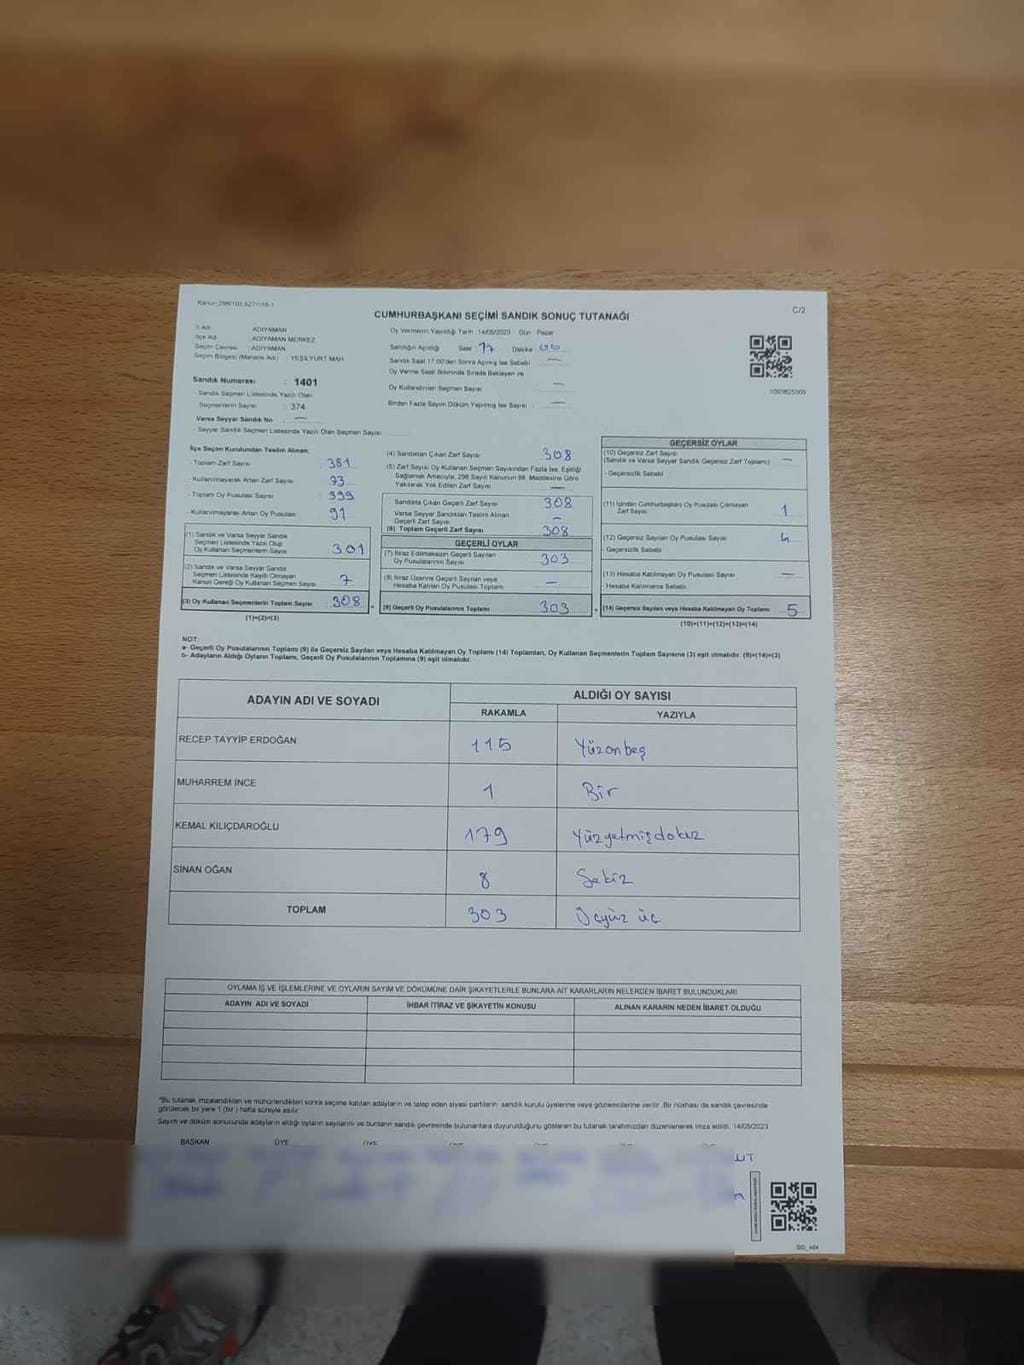 C/2
CUMHURBAŞKANI SEÇİMİ SANDIK SONUÇ TUTANAĞI
İl Adı : ADIYAMAN
İlçe Adı : ADIYAMAN MERKEZ
Seçim Çevresi : ADIYAMAN
Seçim Bölgesi (Mahalle Adı) : YEŞİLYURT MAH.
Sandık Numarası : 1401
- Sandık Seçmen Listesinde Yazılı Olan
Seçmenlerin Sayısı : 374
Varsa Seyyar Sandık No : —
- Seyyar Sandık Seçmen Listesinde Yazılı Olan Seçmen Sayısı
Oy Vermenin Yapıldığı Tarih : 14/05/2023 Gün : Pazar
Sandığın Açıldığı Saat : 17 Dakika : 00
Sandık Saat 17.00'den Sonra Açılmış İse Sebebi : —
Oy Verme Saati Bitiminde Sırada Bekleyen ve
Oy Kullandırılan Seçmen Sayısı : —
Birden Fazla Sayım Döküm Yapılmış İse Sayısı : —
İlçe Seçim Kurulundan Teslim Alınan;
- Toplam Zarf Sayısı : 381
- Kullanılmayarak Artan Zarf Sayısı : 73
- Toplam Oy Pusulası Sayısı : 399
- Kullanılmayarak Artan Oy Pusulası : 91
(1) Sandık ve Varsa Seyyar Sandık
Seçmen Listesinde Yazılı Olup
Oy Kullanan Seçmenlerin Sayısı : 301
(2) Sandık ve Varsa Seyyar Sandık
Seçmen Listesinde Kayıtlı Olmayan
Kanun Gereği Oy Kullanan Seçmen Sayısı : 7
(3) Oy Kullanan Seçmenlerin Toplam Sayısı : 308
(1)+(2)=(3)
(4) Sandıktan Çıkan Zarf Sayısı : 308
(5) Zarf Sayısı Oy Kullanan Seçmen Sayısından Fazla İse, Eşitliği
Sağlamak Amacıyla, 298 Sayılı Kanunun 98. Maddesine Göre
Yakılarak Yok Edilen Zarf Sayısı : —
Sandıkta Çıkan Geçerli Zarf Sayısı : 308
Varsa Seyyar Sandıktan Teslim Alınan
Geçerli Zarf Sayısı : —
(6) Toplam Geçerli Zarf Sayısı : 308
GEÇERLİ OYLAR
(7) İtiraz Edilmeksizin Geçerli Sayılan
Oy Pusulalarının Sayısı : 303
(8) İtiraz Üzerine Geçerli Sayılan veya
Hesaba Katılan Oy Pusulası Toplamı : —
(9) Geçerli Oy Pusulalarının Toplamı : 303
GEÇERSİZ OYLAR
(10) Geçersiz Zarf Sayısı
(Sandık ve Varsa Seyyar Sandık Geçersiz Zarf Toplamı) : —
- Geçersizlik Sebebi
(11) İçinden Cumhurbaşkanı Oy Pusulası Çıkmayan
Zarf Sayısı : 1
(12) Geçersiz Sayılan Oy Pusulası Sayısı : 4
- Geçersizlik Sebebi
(13) Hesaba Katılmayan Oy Pusulası Sayısı : —
- Hesaba Katılmama Sebebi
(14) Geçersiz Sayılan veya Hesaba Katılmayan Oy Toplamı : 5
(10)+(11)+(12)+(13)=(14)
NOT:
a- Geçerli Oy Pusulalarının Toplamı (9) ile Geçersiz Sayılan veya Hesaba Katılmayan Oy Toplamı (14) Toplamları, Oy Kullanan Seçmenlerin Toplam Sayısına (3) eşit olmalıdır. (9)+(14)=(3)
b- Adayların Aldığı Oyların Toplamı, Geçerli Oy Pusulalarının Toplamına (9) eşit olmalıdır.
ADAYIN ADI VE SOYADI ALDIĞI OY SAYISI
RAKAMLA YAZIYLA
RECEP TAYYİP ERDOĞAN 115 Yüzonbeş
MUHARREM İNCE 1 Bir
KEMAL KILIÇDAROĞLU 179 Yüzyetmişdokuz
SİNAN OĞAN 8 Sekiz
TOPLAM 303 Üçyüz üç
OYLAMA İŞ VE İŞLEMLERİNE VE OYLARIN SAYIM VE DÖKÜMÜNE DAİR ŞİKAYETLERLE BUNLARA AİT KARARLARIN NELERDEN İBARET BULUNDUKLARI
ADAYIN ADI VE SOYADI İHBAR İTİRAZ VE ŞİKAYETİN KONUSU ALINAN KARARIN NEDEN İBARET OLDUĞU
*Bu tutanak imzalandıktan ve mühürlendikten sonra seçime katılan adayların ve talep eden siyasi partilerin sandık kurulu üyelerine veya gözlemcilerine verilir. Bir nüshası da sandık çevresinde
görülecek bir yere 1 (bir) hafta süreyle asılır.
Sayım ve döküm sonucunda adayların aldığı oyların sayılarını ve bunların sandık çevresinde bulunanlara duyurulduğunu gösteren bu tutanak tarafımızdan düzenlenerek imza edildi. 14/05/2023
BAŞKAN ÜYE ÜYE